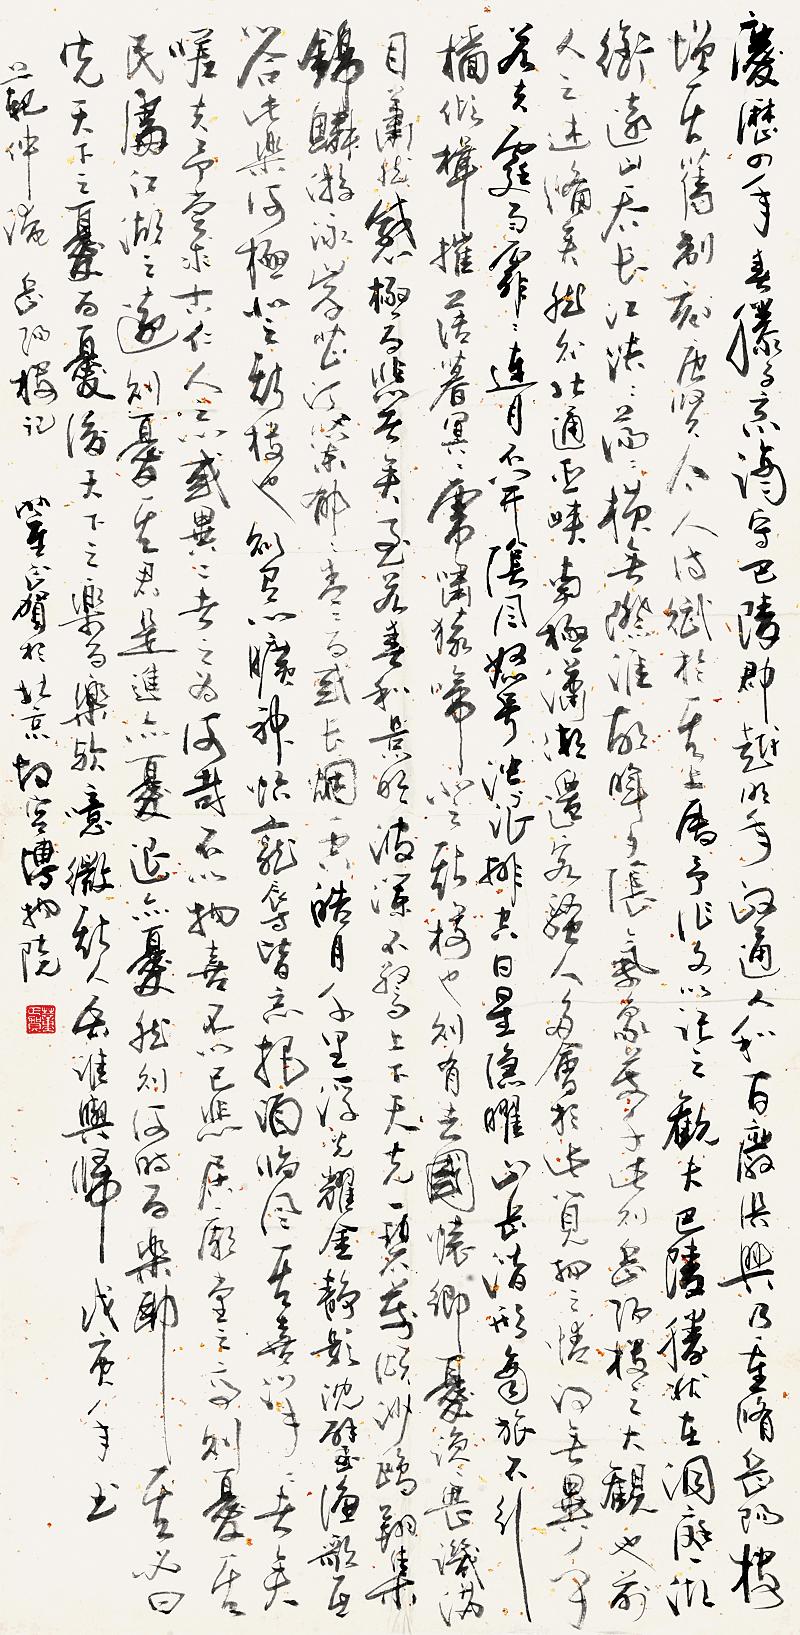 慶歷四年春滕子京謫守巴陵郡越明年政通人和百廢俱興乃重脩岳陽樓
增其舊制刻唐賢今人詩賦於其上屬予作文以記之觀夫巴陵勝狀在洞庭一湖
銜遠山吞長江浩浩湯湯橫無際涯朝暉夕陰氣象萬千此則岳陽樓之大觀也前
人之述備矣然則北通巫峽南極瀟湘遷客騷人多會於此覽物之情得無異乎
若夫霪雨霏霏連月不開陰風怒號濁浪排空日星隱曜山岳潛形商旅不行
檣傾楫摧薄暮冥冥虎嘯猿啼登斯樓也則有去國懷鄉憂讒畏譏滿
目蕭然感極而悲者矣至若春和景明波瀾不驚上下天光一碧萬頃沙鷗翔集
錦鱗游泳岸芷汀蘭郁郁青青而或長煙一空皓月千里浮光耀金靜影沈璧漁歌互
答此樂何極登斯樓也則有心曠神怡寵辱皆忘把酒臨風其喜洋洋者矣
嗟夫予嘗求古仁人之心或異二者之為何哉不以物喜不以己悲居廟堂之高則憂其
民處江湖之遠則憂其君是進亦憂退亦憂然則何時而樂耶其必曰
先天下之憂而憂後天下之樂而樂歟噫微斯人吾誰與歸 年書
范仲淹 岳陽樓記 董正賀於北京故宮博物院
董正賀